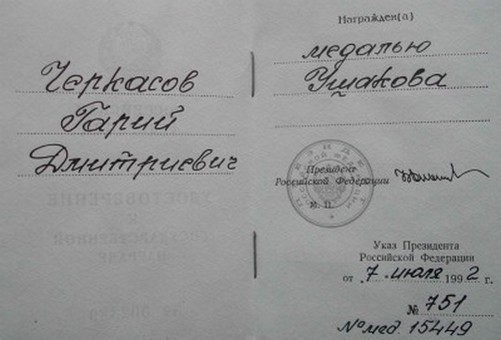 Черкасов
Гарий
Дмитриевич
Награжден(а)
медалью
Ушакова
Президент
Российской Федерации
М. П.
Указ Президента
Российской Федерации
от 7 июля 1992 г.
№ 751
№ мед. 15449
УДОСТОВЕРЕНИЕ
К
ГОСУДАРСТВЕННОЙ
НАГРАДЕ